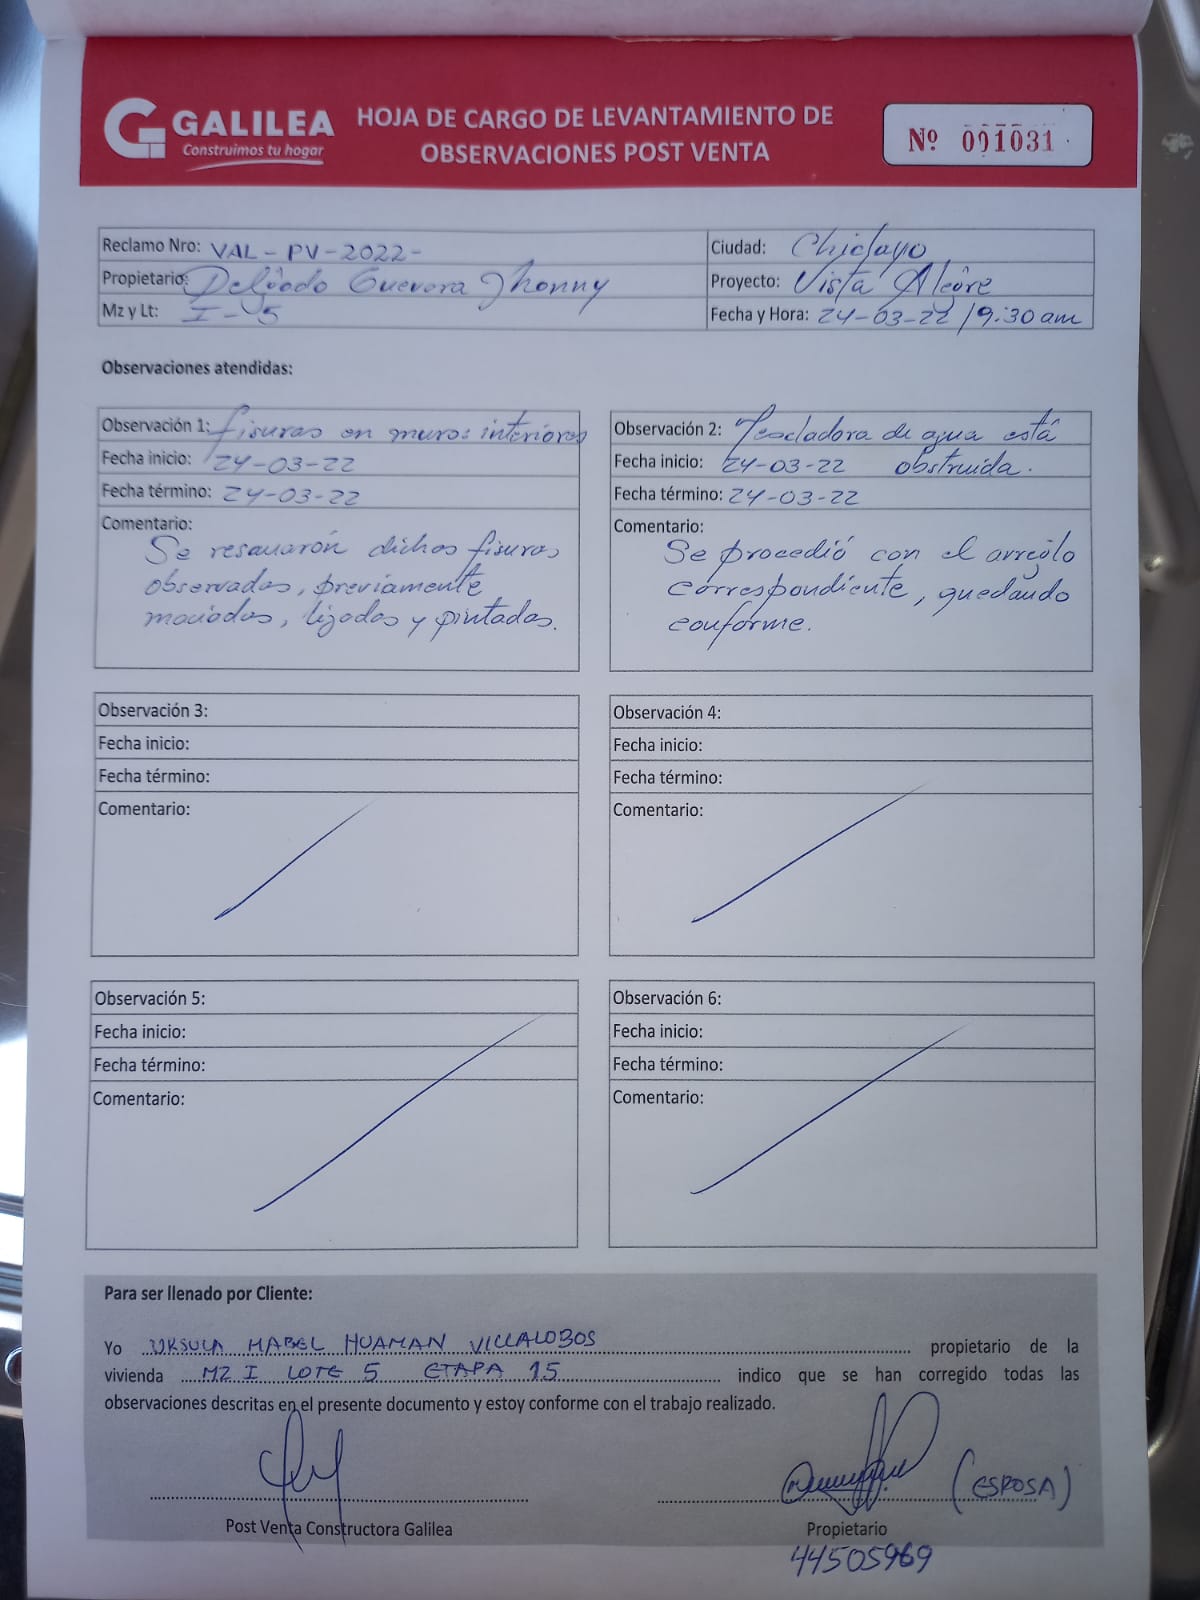 GALILEA
Construimos tu hogar
HOJA DE CARGO DE LEVANTAMIENTO DE
OBSERVACIONES POST VENTA
Nº 001031
Reclamo Nro: VAL-PV-2022-
Ciudad: Chiclayo
Propietario: Delgado Guevara Jhonny
Proyecto: Vista Alegre
Mz y Lt: I-5
Fecha y Hora: 24-03-22 / 9:30 am
Observaciones atendidas:
Observación 1: fisuras en muros interiores
Fecha inicio: 24-03-22
Fecha término: 24-03-22
Comentario:
Se resanaron dichas fisuras
observadas, previamente
lijadas y pintadas.
Observación 2: Mezcladora de agua está
Fecha inicio: 24-03-22 obstruida.
Fecha término: 24-03-22
Comentario:
Se procedió con el arreglo
correspondiente, quedando
conforme.
Observación 3:
Fecha inicio:
Fecha término:
Comentario:
Observación 4:
Fecha inicio:
Fecha término:
Comentario:
Observación 5:
Fecha inicio:
Fecha término:
Comentario:
Observación 6:
Fecha inicio:
Fecha término:
Comentario:
Para ser llenado por Cliente:
Yo URSULA MABEL HUAMAN VILLALOBOS propietario de la
vivienda MZ I LOTE 5 ETAPA 15 indico que se han corregido todas las
observaciones descritas en el presente documento y estoy conforme con el trabajo realizado.
(ESPOSA)
Post Venta Constructora Galilea
Propietario
44505969